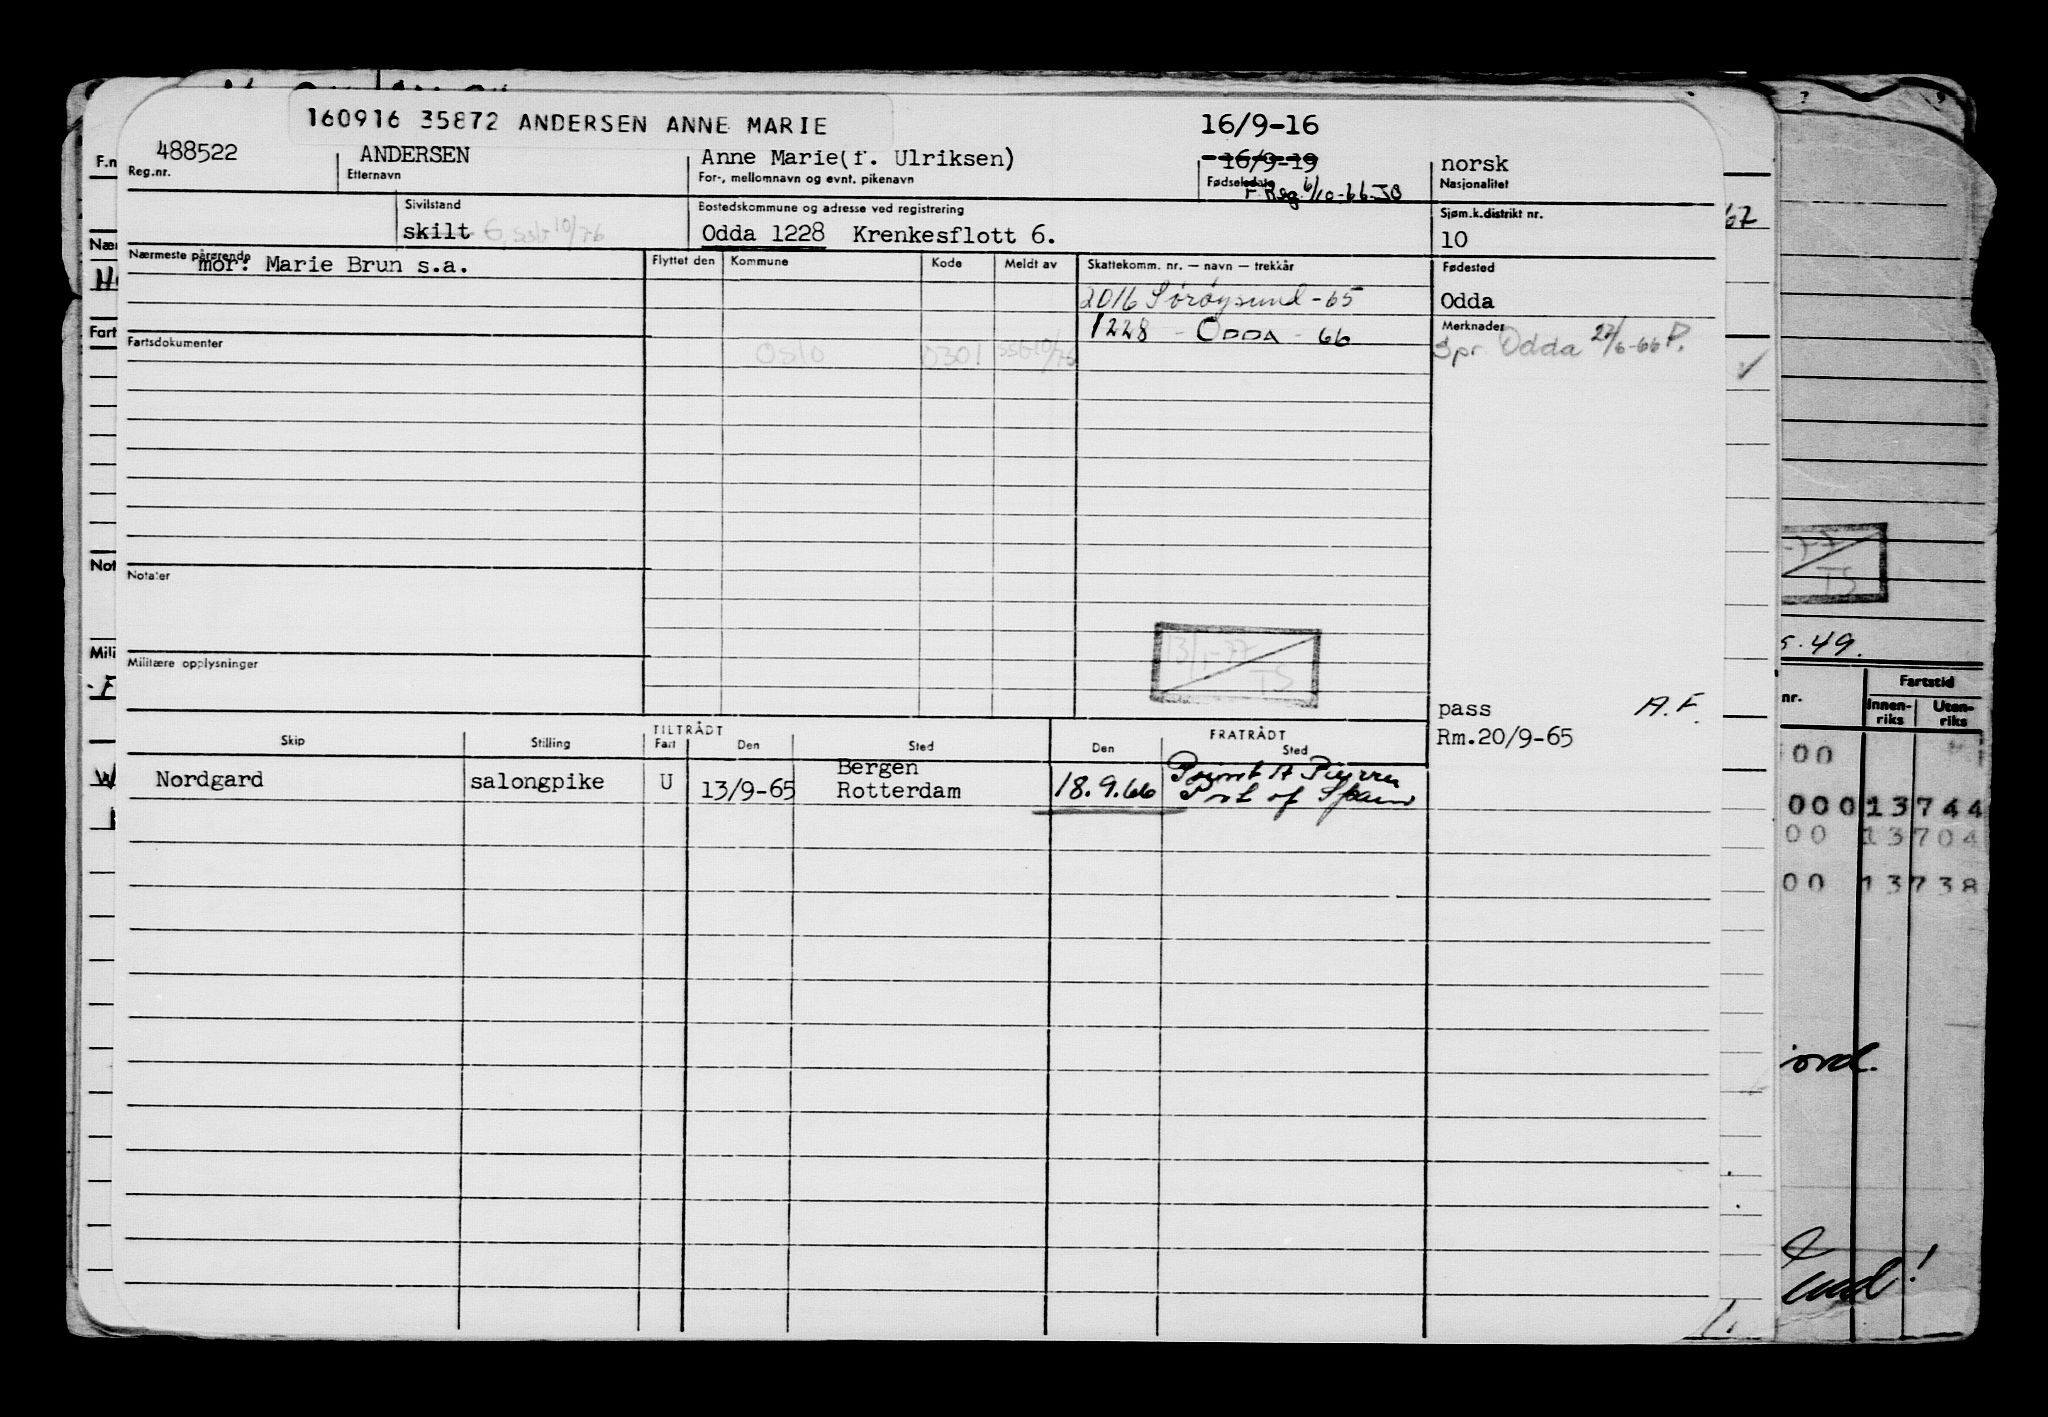 160916 35872 ANDERSEN ANNE MARIE
16/9-16
488522
Reg.nr.
ANDERSEN
Etternavn
Anne Marie(f. Ulriksen)
For-, mellomnavn og evnt. pikenavn
16/9-19
Fødselsdato
F. Reg. 6/10-66 JO
norsk
Nasjonalitet
Sivilstand
skilt G, ssb 10/76
Bostedskommune og adresse ved registrering
Odda 1228 Krenkesflott 6.
Sjøm.k.distrikt nr.
10
Nærmeste pårørende
mor: Marie Brun s.a.
Flyttet den
Kommune
Kode
Meldt av
Skattekomm. nr. — navn — trekkår
Fødested
Odda
2016 Sørøysund - 65
1228 - ODDA - 66
Merknader
Spr. Odda 27/6-66 P.
Fartsdokumenter
Oslo 0301 ssb 10/76
Notater
13/1-77
TS
Militære opplysninger
pass A.F.
Rm.20/9-65
Skip
Stilling
TILTRÅDT
Fart
Den
Sted
FRATRÅDT
Den
Sted
Nordgard salongpike U 13/9-65
Bergen
Rotterdam
18.9.66
Point A Pierre
Port of Spain
F.n
Nær
Fart
Not
Mili
67
TS
5.49.
nr.
Fartstid
Innen-
riks
Uten-
riks
00
000 13744
00 13704
00 13738